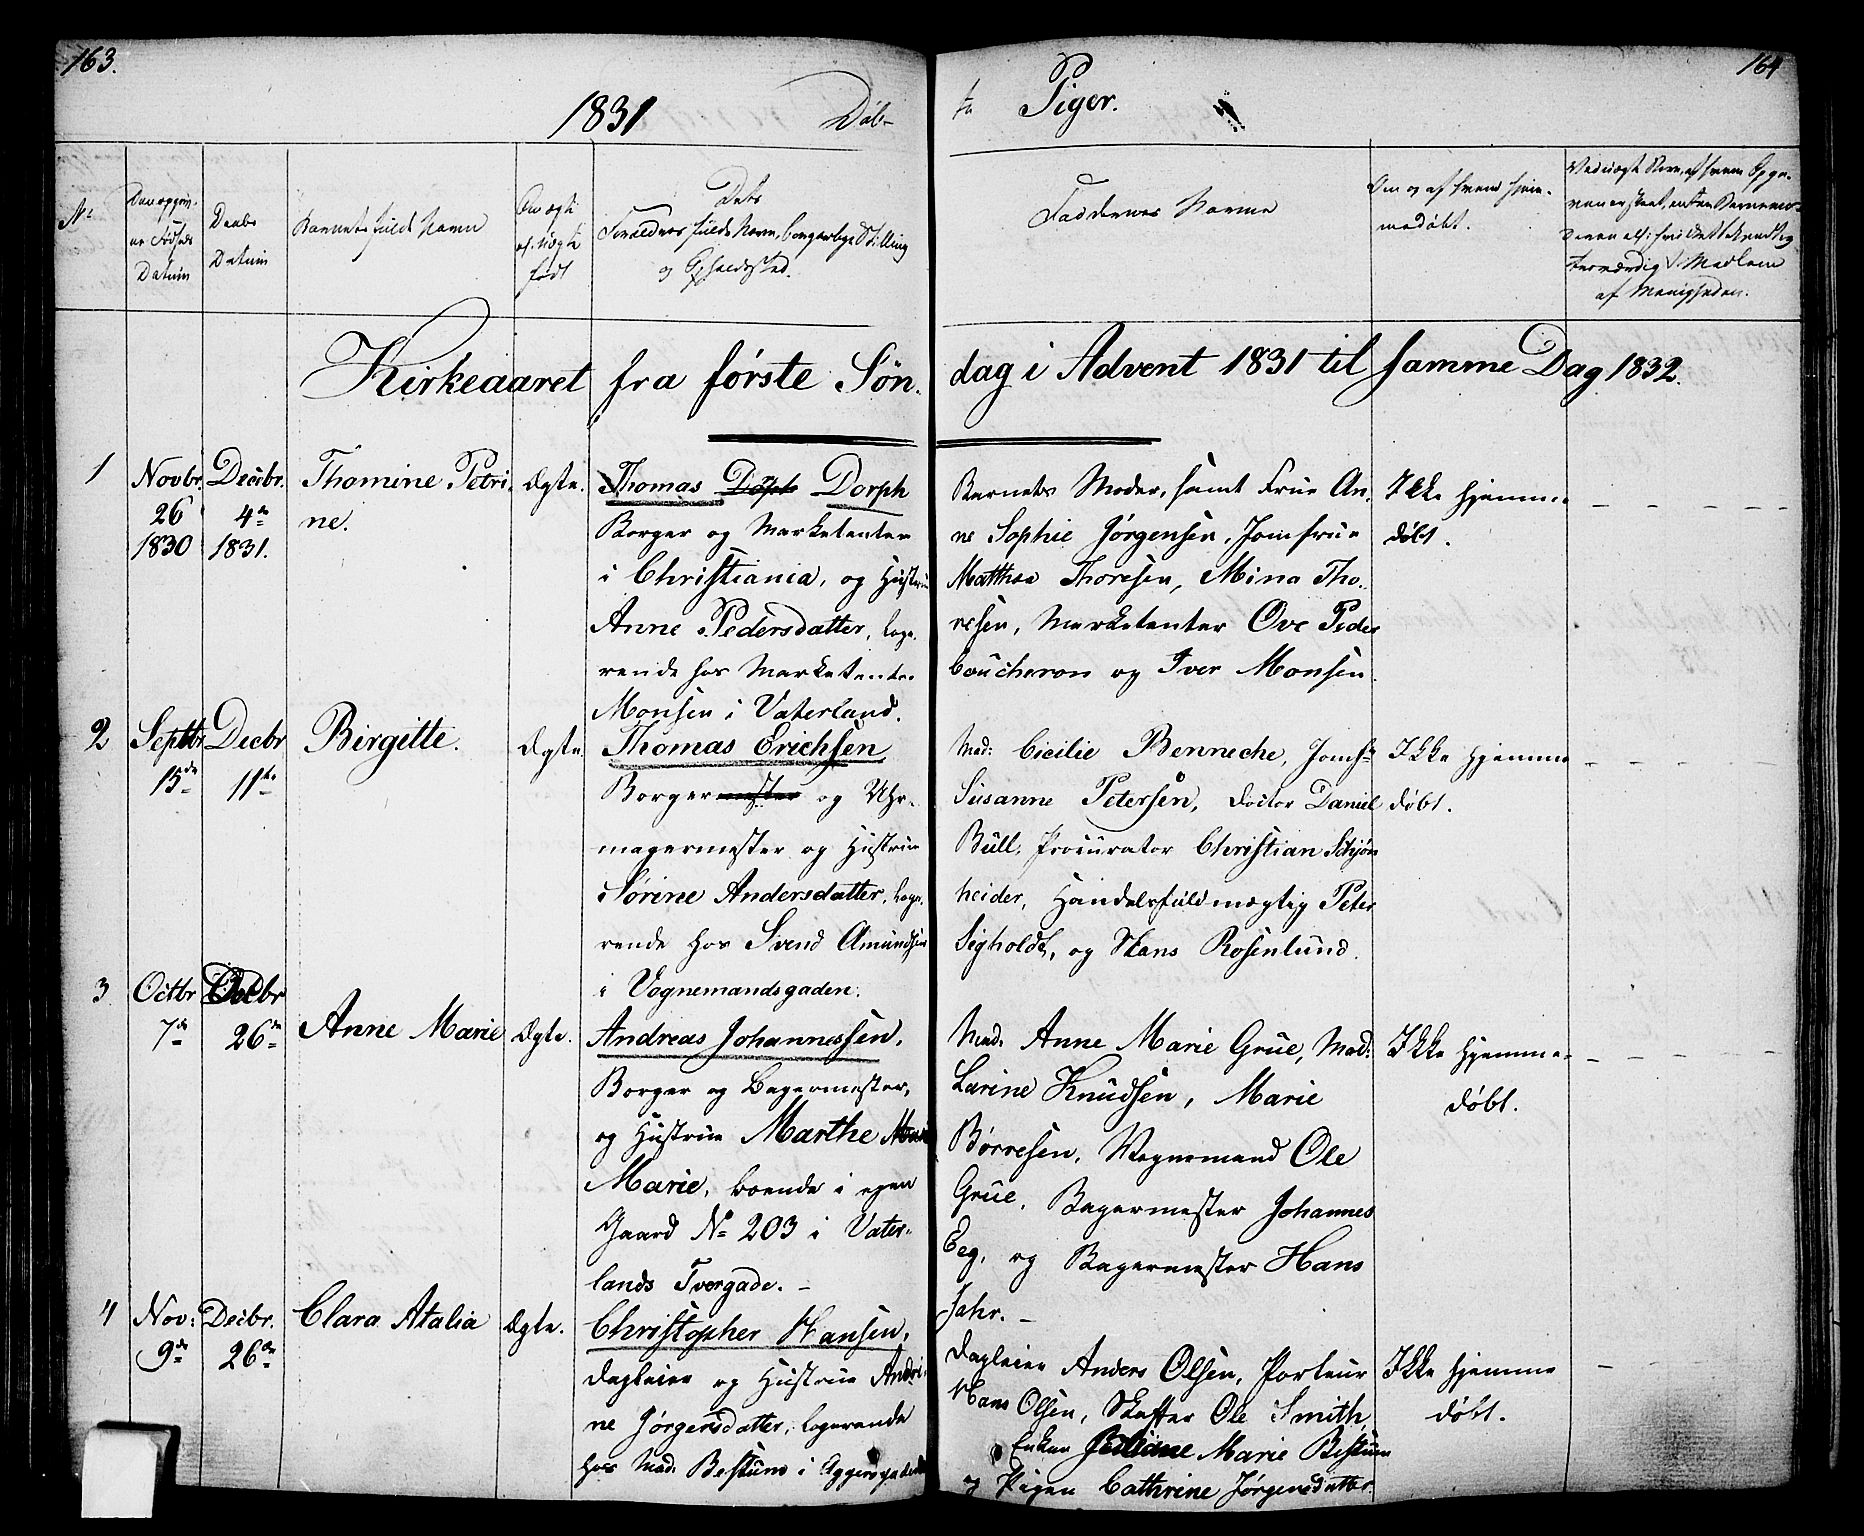 163.
1831
Døb-
te
Piger.
164
No
Den opgivne Fødsels Datum
Daabs Datum
Barnets fulde Navn
Om ægte el. uægte født
Dets Forældres fulde Navn, borgerlige Stilling og Opholdssted.
Faddernes Navne
Om og af hvem hjemmedøbt.
Kirkeaaret fra første Søn-
dag i Advent 1831 til samme Dag 1832.
1
Novbr. 26 1830
Decbr. 4de 1831.
Thomine Petri-
ne.
Ægte.
Thomas Döph Dorph
Borger og Marketenter
i Christiania, og Hustrue
Anne Pedersdatter, loge-
rende hos Marketenter
Monsen i Vaterland.
Barnets Moder, samt Frue An-
ne Sophie Jørgensen, Jomfrue
Matthea Thoresen, Mina Tho-
resen, Marketenter Ove Peder
Boucheron og Iver Monsen.
Ikke hjemme-
døbt.
2
Septbr 15de
Decbr 11te
Birgitte.
Ægte.
Thomas Erichsen
Borgermester og Uhr-
magermester og Hustrue
Sørine Andersdatter, loge-
rende hos Svend Amundsen
i Vognemandsgaden.
Mad: Cicilie Benneche, Jomf:
Susanne Petersen, Doctor Daniel
Bull, Procurator Christian Schjøn
heider, Handelsfuldmægtig Peter
Sigholdt, og Hans Rosenlund.
Ikke hjemme
døbt.
3
Octbr 7de
Decbr 26de
Anne Marie
Ægte.
Andreas Johannessen,
Borger og Bagermester,
og Hustrue Marthe
Marie, boende i egen
Gaard No 203 i Vater-
lands Tvergade. –
Mad. Anne Marie Grue, Mad:
Larine Knudsen, Marie
Børresen, Vognemand Ole
Grue, Bagermester Johannes
Eeg, og Bagermester Hans
Jahr. –
Ikke hjemme-
døbt.
4
Nov: 9de
Decbr. 26de
Clara Atalia
Ægte.
Christopher Hansen,
Dagleier og Hustrue Andri-
ne Jørgensdatter, logerende
hos Mad. Bestum i Aggersgaden
Dagleier Anders Olsen, Porteur
Hans Olsen, Skaffer Ole Smith,
Enken Juliane Marie Bestum
og Pigen Cathrine Jørgensdatter.
Ikke hjemme
døbt.